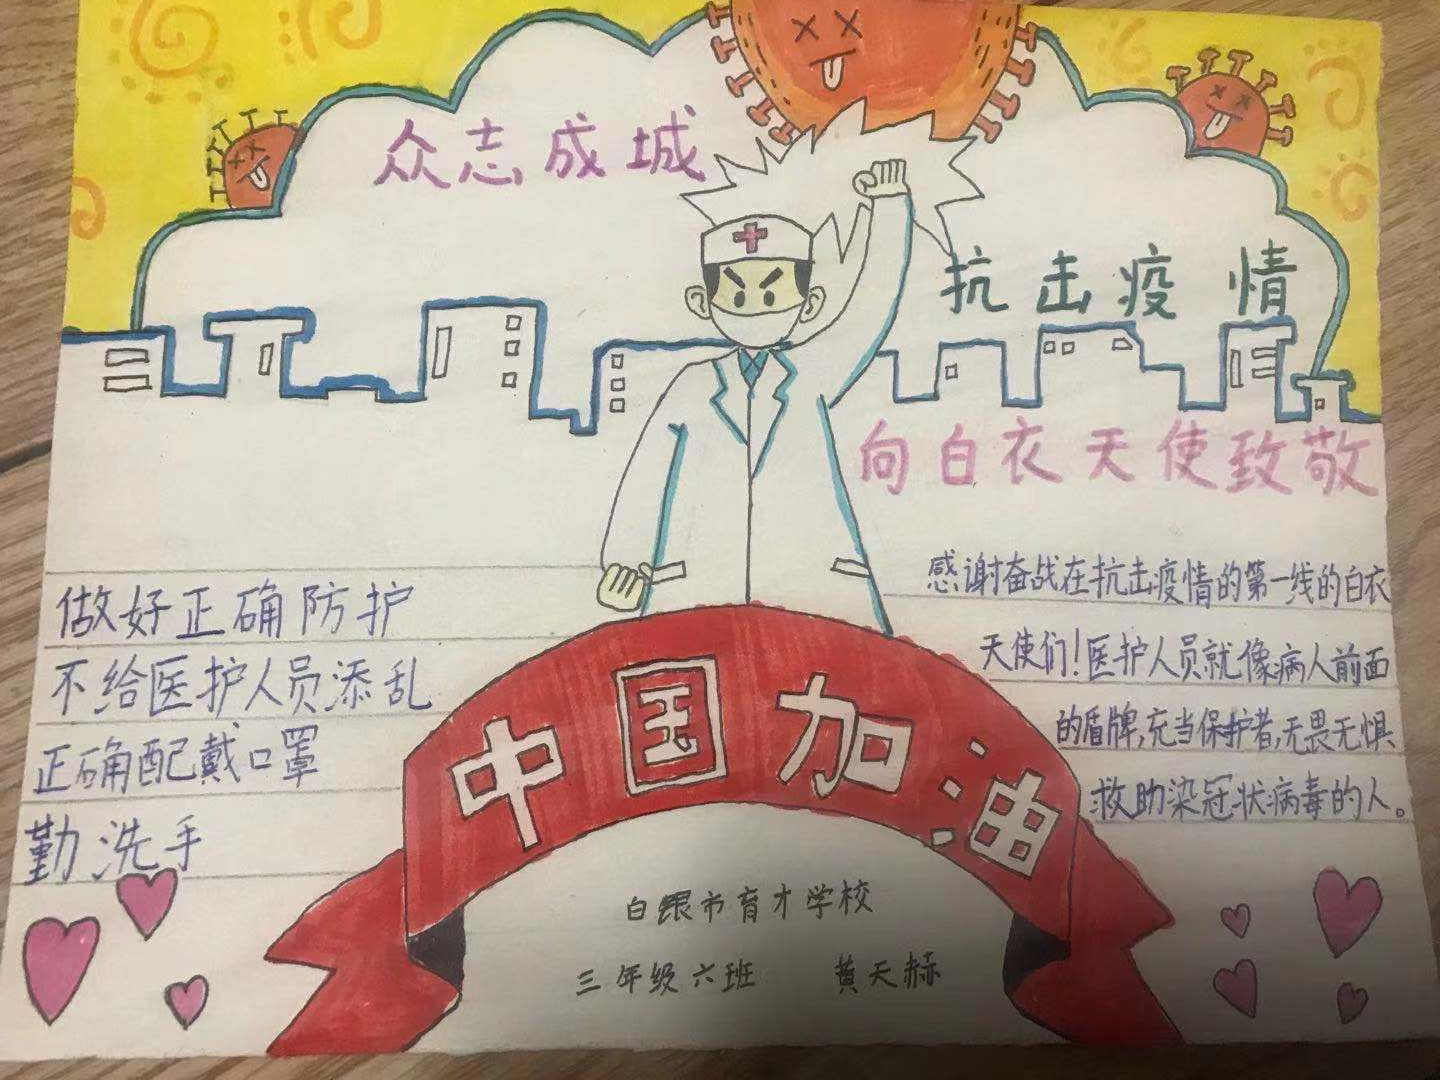 众志成城
抗击疫情
向白衣天使致敬
做好正确防护
不给医护人员添乱
正确配戴口罩
勤洗手
感谢奋战在抗击疫情的第一线的白衣
天使们！医护人员就像病人前面
的盾牌，充当保护者，无畏无惧
救助染冠状病毒的人。
中国加油
白银市育才学校
三年级六班 黄天赫